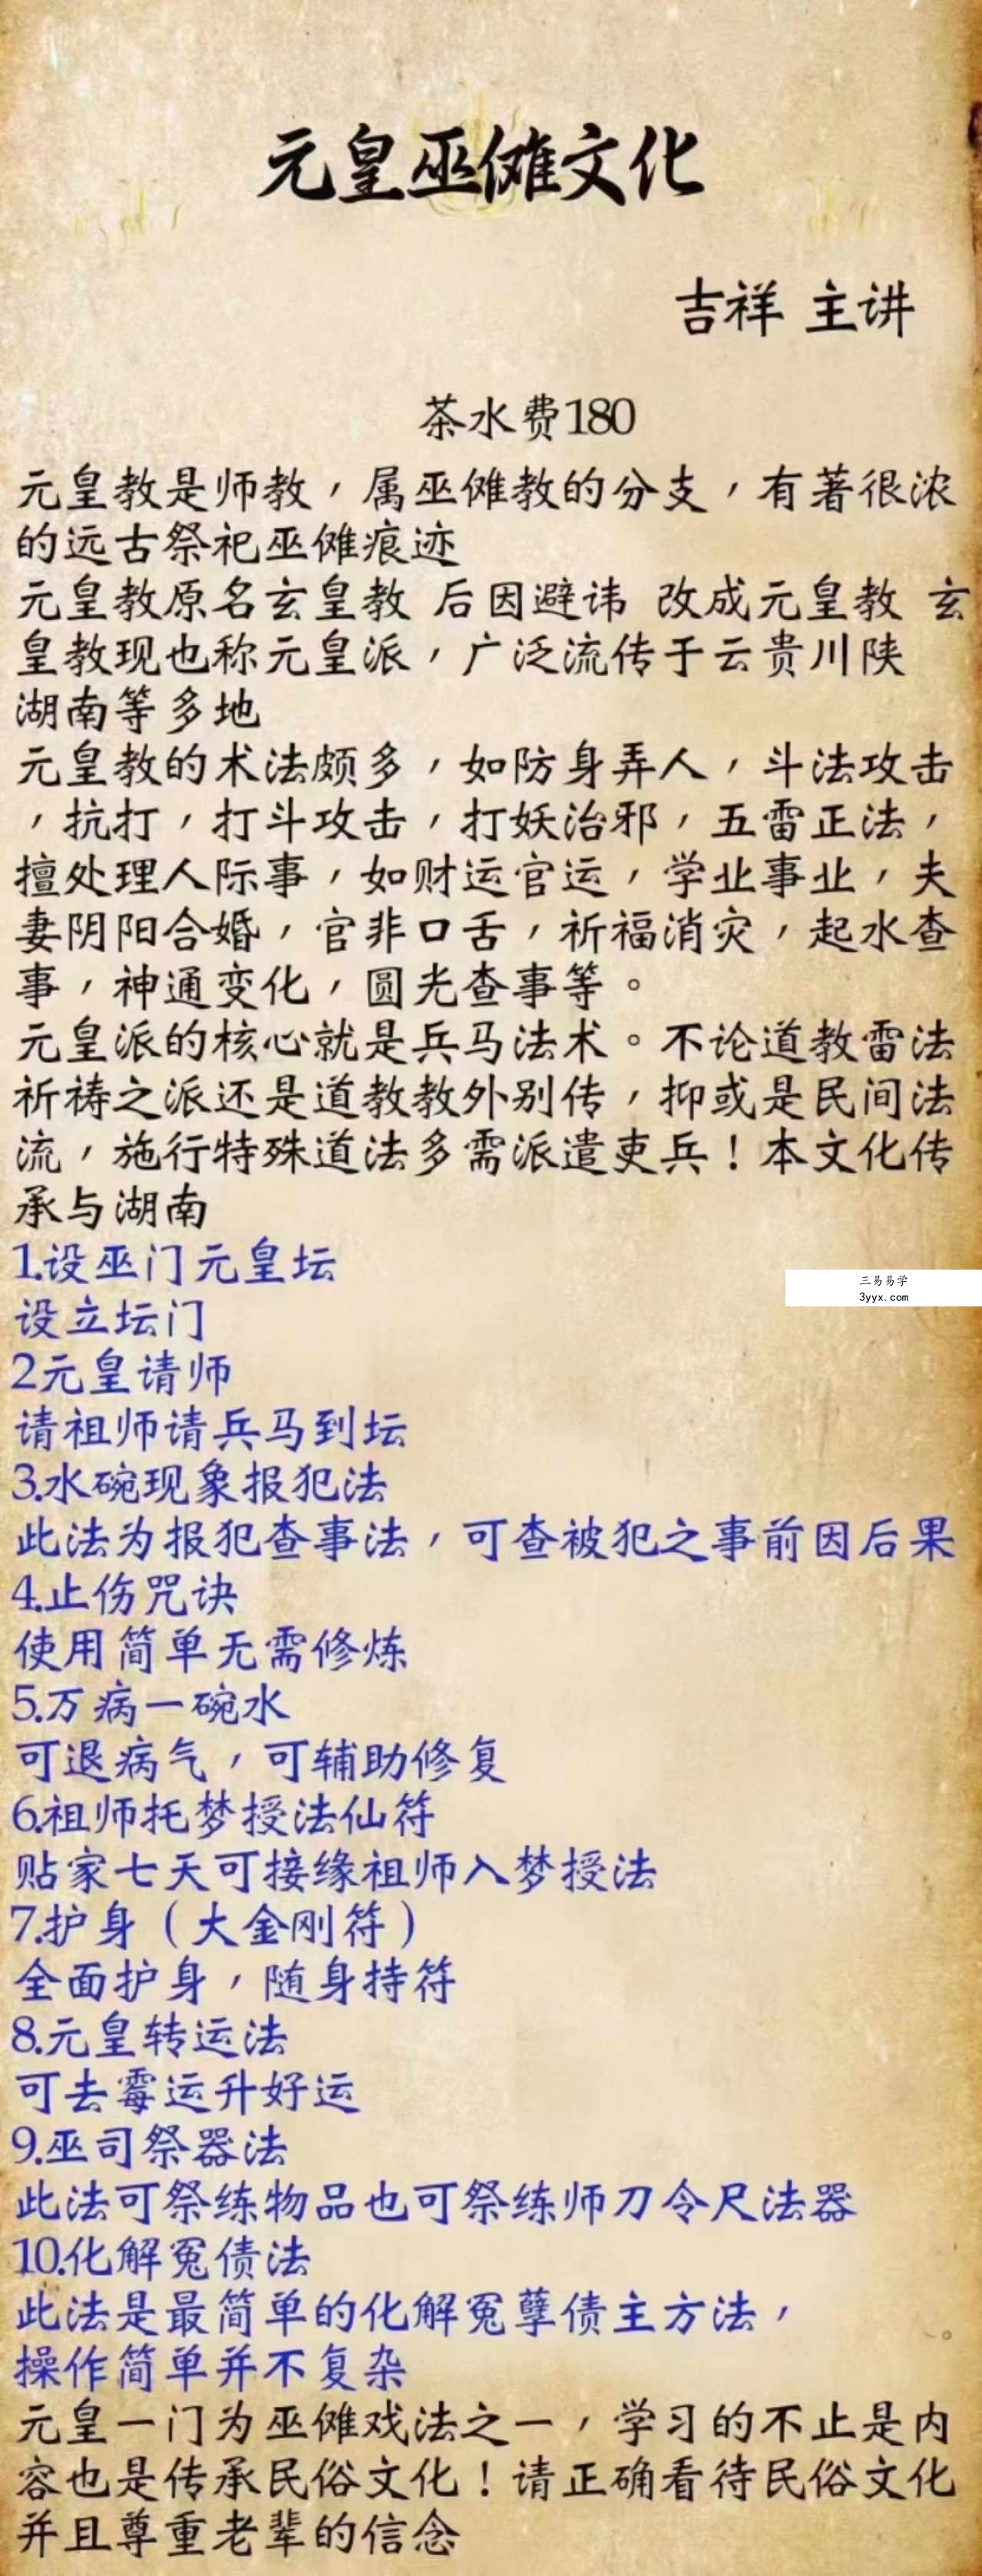 元皇巫傩文化
吉祥 主讲
茶水费180
元皇教是师教，属巫傩教的分支，有著很浓
的远古祭祀巫傩痕迹
元皇教原名玄皇教 后因避讳 改成元皇教 玄
皇教现也称元皇派，广泛流传于云贵川陕
湖南等多地
元皇教的术法颇多，如防身弄人，斗法攻击
，抗打，打斗攻击，打妖治邪，五雷正法，
擅处理人际事，如财运官运，学业事业，夫
妻阴阳合婚，官非口舌，祈福消灾，起水查
事，神通变化，圆光查事等。
元皇派的核心就是兵马法术。不论道教雷法
祈祷之派还是道教教外别传，抑或是民间法
流，施行特殊道法多需派遣吏兵！本文化传
承与湖南
1.设巫门元皇坛
三易易学
3yyx.com
设立坛门
2元皇请师
请祖师请兵马到坛
3.水碗现象报犯法
此法为报犯查事法，可查被犯之事前因后果
4.止伤咒诀
使用简单无需修炼
5.万病一碗水
可退病气，可辅助修复
6.祖师托梦授法仙符
贴家七天可接缘祖师入梦授法
7.护身（大金刚符）
全面护身，随身持符
8.元皇转运法
可去霉运升好运
9.巫司祭器法
此法可祭练物品也可祭练师刀令尺法器
10.化解冤债法
此法是最简单的化解冤孽债主方法，
操作简单并不复杂
元皇一门为巫傩戏法之一，学习的不止是内
容也是传承民俗文化！请正确看待民俗文化
并且尊重老辈的信念